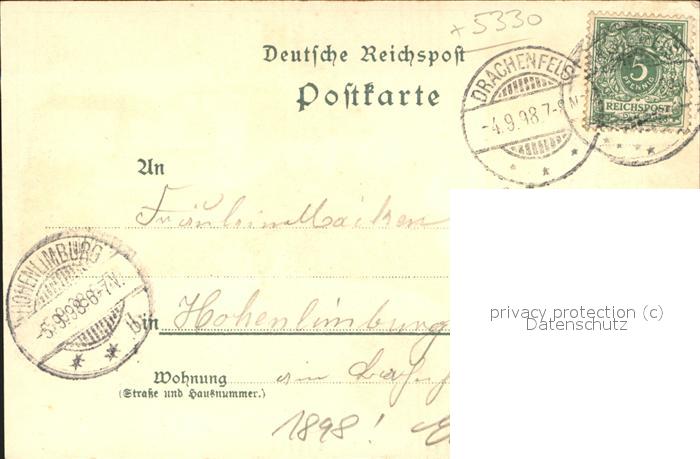 +5330
Deutsche Reichspost
Postkarte
5
REICHSPOST
DRACHENFELS
-4.9.98.7-8 N
An
Fräulein
HOHENLIMBURG
-5.9.98.6-7 V.
in Hohenlimburg
privacy protection (c)
Datenschutz
Wohnung
(Straße und Hausnummer.)
am
1898!